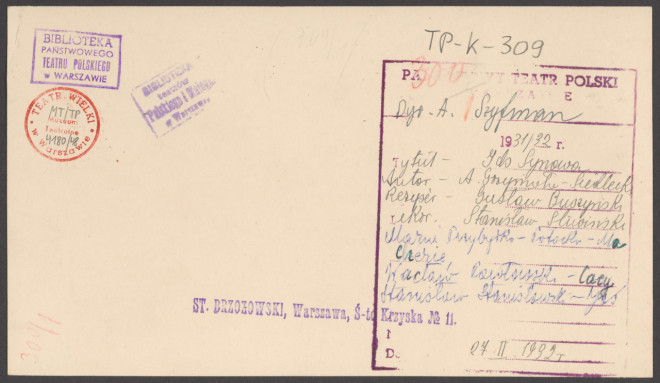 TP-K-309
BIBLIOTEKA
PAŃSTWOWEGO
TEATRU POLSKIEGO
w WARSZAWIE
TEATR WIELKI
w Warszawie
MT/TP
Muzeum
Teatralne
4180/48
BIBLIOTEKA
teatrów
Polskiego i
w Warszawie
300
PA TEATR POLSKI
Dyr. A. Szyfman
1931/32 r.
Tytuł - Jds Synowa
Autor - A. Grzymała-Siedlecki
Reżyser - Gustaw Buszyński
Dekor. Stanisław Śliwiński
Maria Przybyłko-Potocka - Ma

Wacław - Cacy
Stanisław Stanisławski -
ST. BRZOZOWSKI, Warszawa, Ś-to Krzyska № 11.
D. 27 II. 1932 r